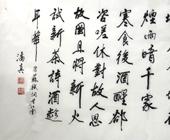 煙雨暗千家
寒食後酒醒卻
咨嗟休對故人思
故國且將新火
試新茶詩酒趁
年華